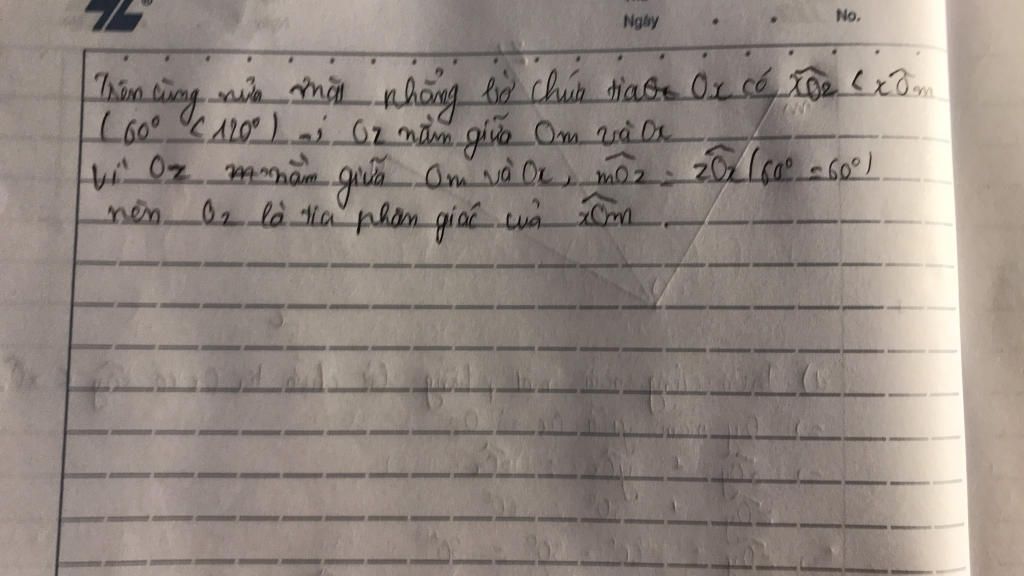 Ngày . . No.
Trên cùng nửa mặt phẳng bờ chứa tia Ox có xÔz < xÔm
(60° < 120°) → Oz nằm giữa Om và Ox
Vì Oz nằm giữa Om và Ox, mÔz = zÔx (60° = 60°)
nên Oz là tia phân giác của xÔm.